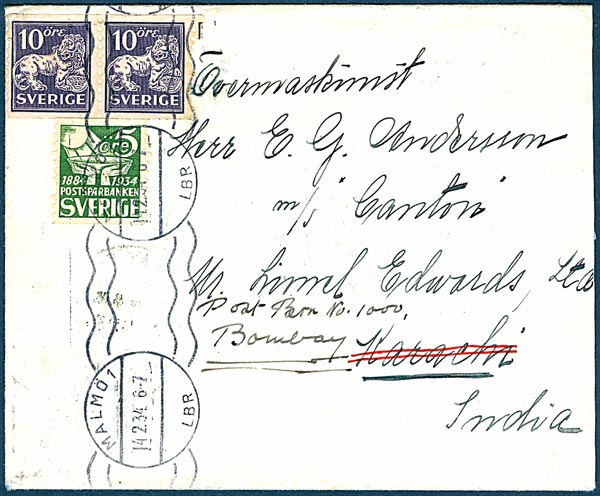 10 ÖRE 10 ÖRE
SVERIGE SVERIGE
5
ÖRE
1884 1934
POSTSPARBANKEN
SVERIGE
14.2.34. 6-7
LBR
Övermaskinist
Herr E. G. Andersson
m/s "Canton"
Mr. Lionel Edwards, Ltd
Post Box No. 1000,
Bombay Karachi
India
MALMÖ 1
14.2.34. 6-7
LBR